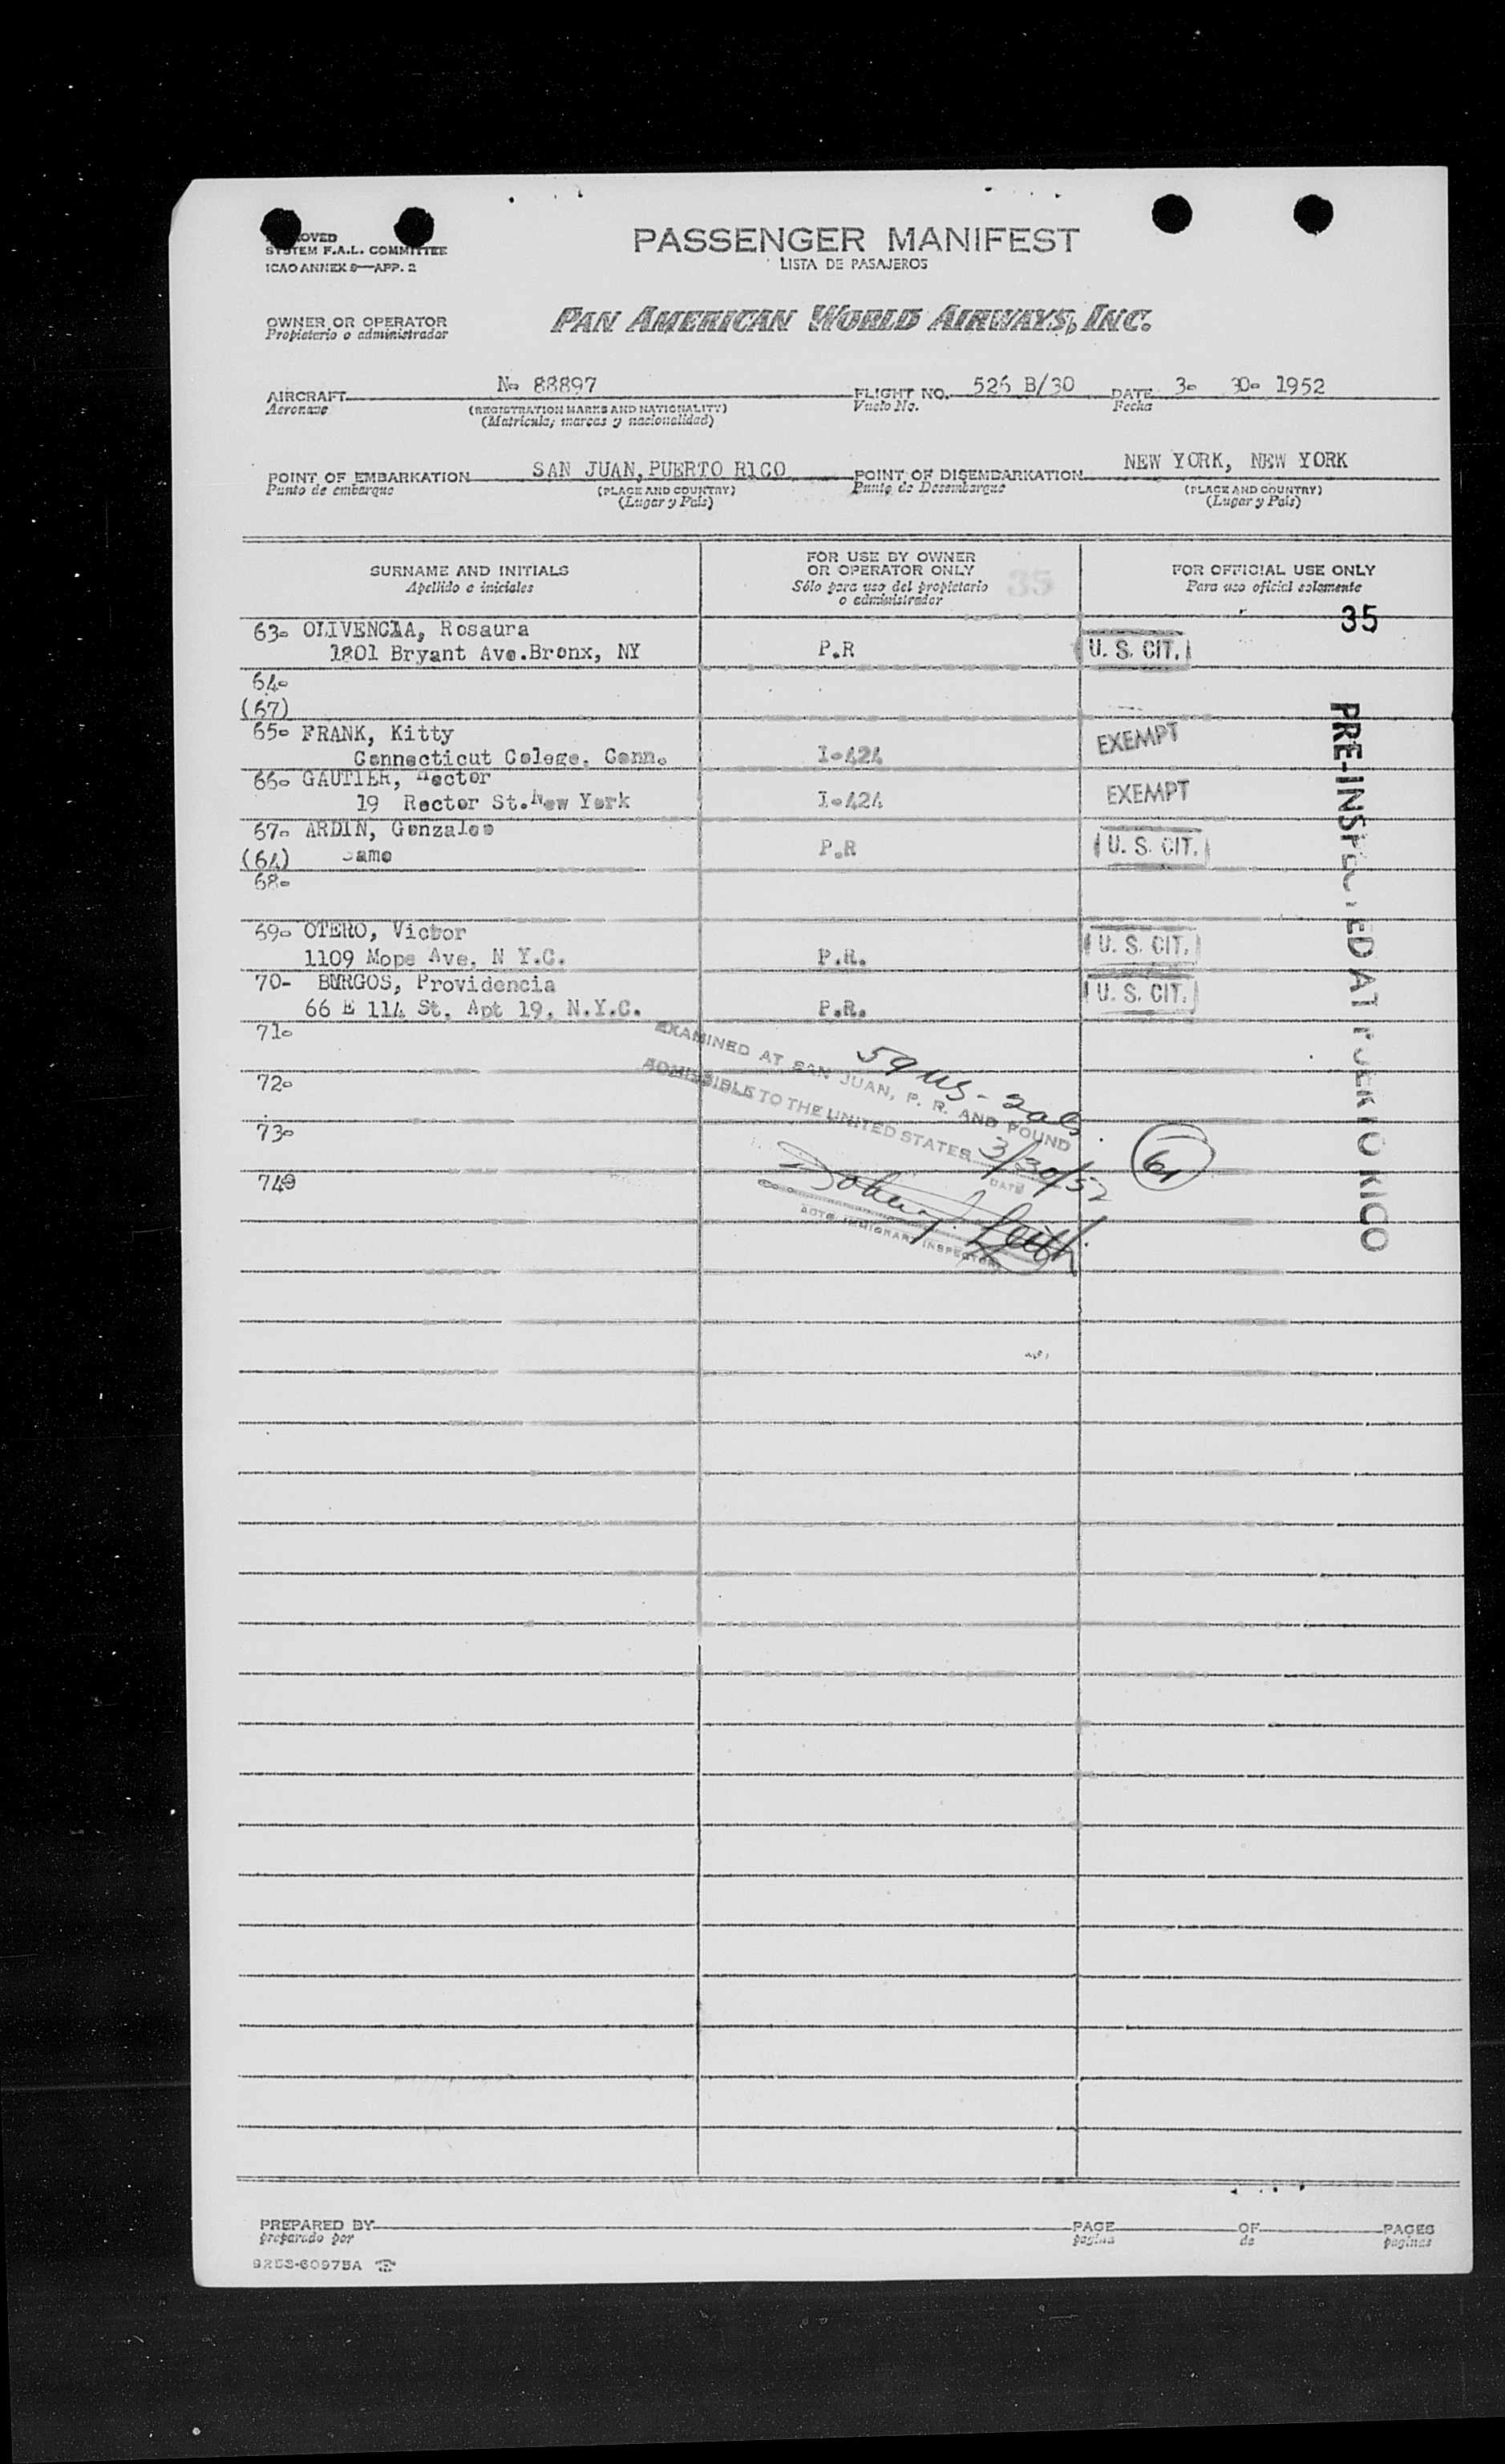 PASSENGER MANIFEST
LISTA DE PASAJEROS
SYSTEM F.A.L. COMMITTEE
ICAO ANNEX 9—APP. 2
OWNER OR OPERATOR
Propietario o administrador
PAN AMERICAN WORLD AIRWAYS, INC.
AIRCRAFT No 88897 FLIGHT NO. 526 B/30 DATE 3- 30- 1952
Aeronave (REGISTRATION MARKS AND NATIONALITY) Vuelo No. Fecha
(Matricula; marcas y nacionalidad)
POINT OF EMBARKATION SAN JUAN, PUERTO RICO POINT OF DISEMBARKATION NEW YORK, NEW YORK
Punto de embarque (PLACE AND COUNTRY) Punto de Desembarque (PLACE AND COUNTRY)
(Lugar y País) (Lugar y País)
SURNAME AND INITIALS
Apellido e iniciales
FOR USE BY OWNER
OR OPERATOR ONLY
Sólo para uso del propietario
o administrador
35
FOR OFFICIAL USE ONLY
Para uso oficial solamente
35
63- OLIVENCIA, Rosaura
1801 Bryant Ave.Bronx, NY P.R U. S. CIT.
64-
(67)
65- FRANK, Kitty
Connecticut Colege, Conn. I-424 EXEMPT
66- GAUTIER, Hector
19 Rector St.New York I-424 EXEMPT
67- ARDIN, Gonzaloo
(64) Same P.R U. S. CIT.
68-
69- OTERO, Victor
1109 Mope Ave, N Y.C. P.R. U. S. CIT.
70- BURGOS, Providencia
66 E 114 St, Apt 19, N.Y.C. P.R. U. S. CIT.
71-
72-
73-
74-
EXAMINED AT SAN JUAN, P. R. AND FOUND
ADMISSIBLE TO THE UNITED STATES 3/30/52
DATE
59 US - 2
61
ACTG. IMMIGRANT INSPECTOR
PRE-INSPECTED AT PUERTO RICO
PREPARED BY PAGE OF PAGES
preparado por pagina de paginas
9253-60975A